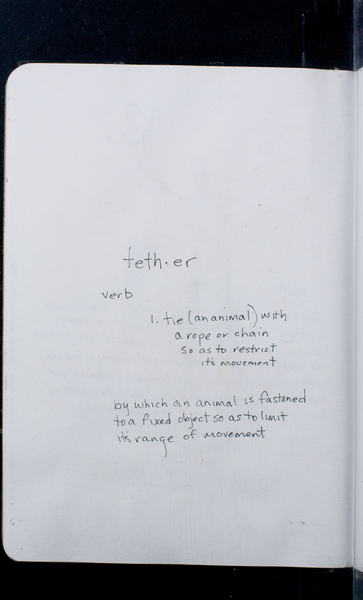 teth·er
verb
1. tie (an animal) with
a rope or chain
so as to restrict
it's movement
by which an animal is fastened
to a fixed object so as to limit
it's range of movement